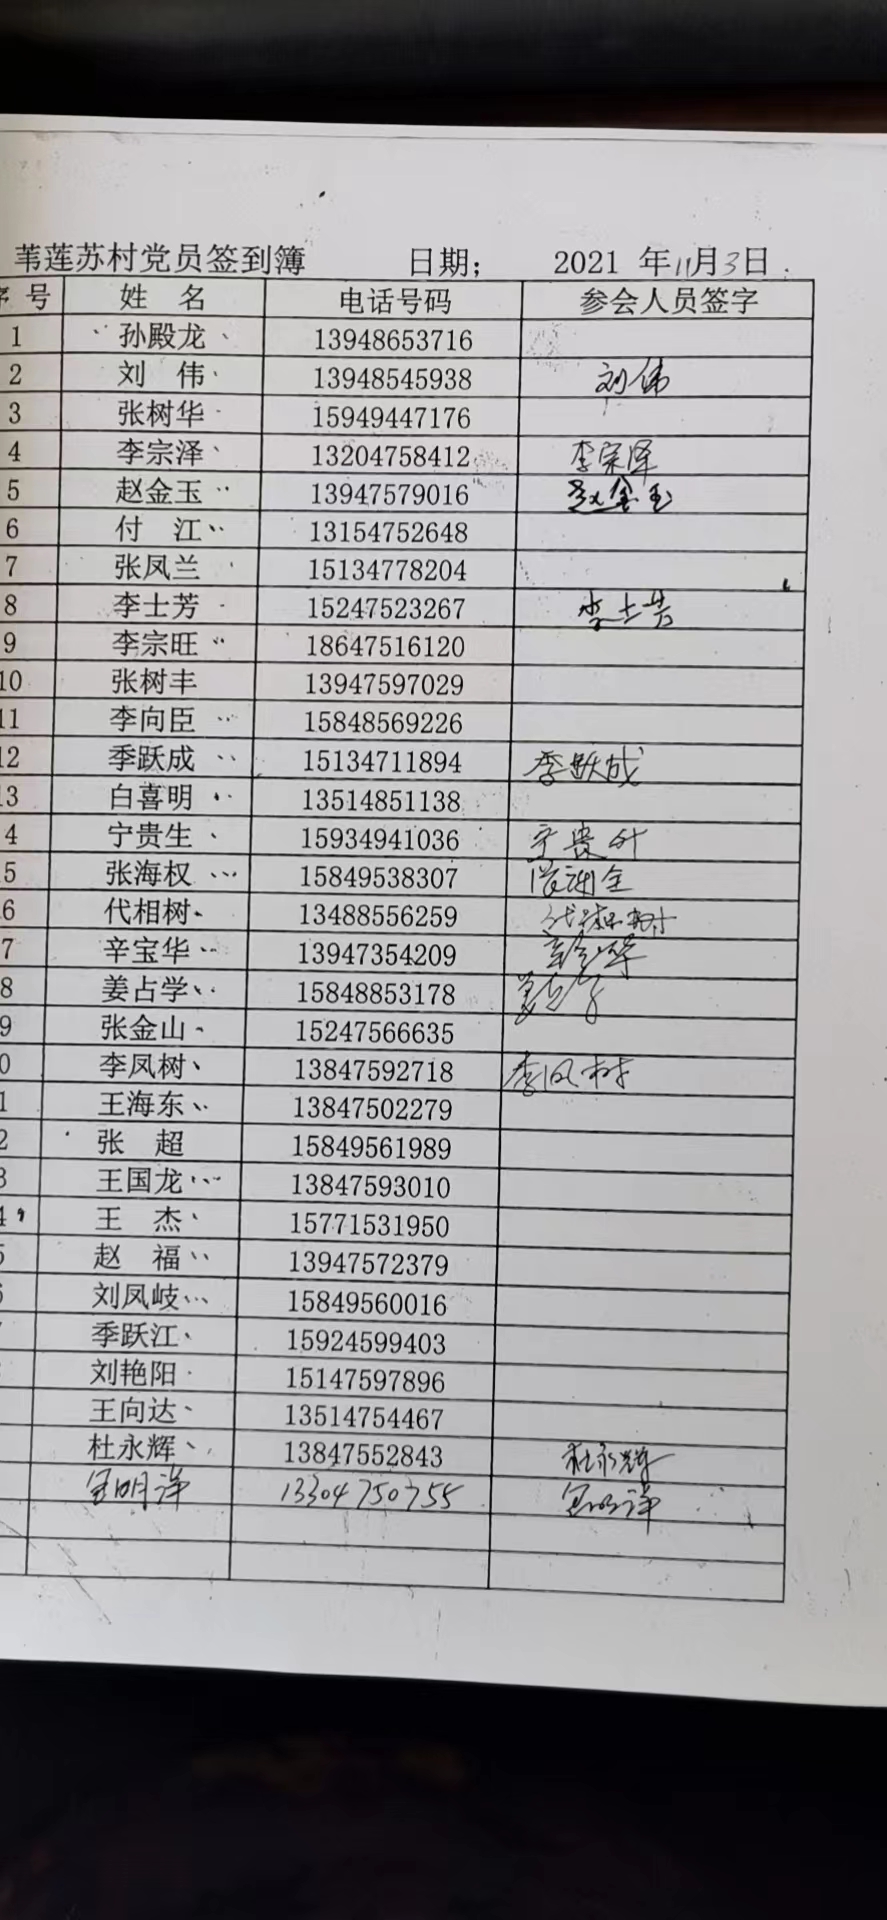 苇莲苏村党员签到簿 日期； 2021 年11月3日
序 号 姓 名 电话号码 参会人员签字
1 孙殿龙 13948653716
2 刘 伟 13948545938 刘伟
3 张树华 15949447176
4 李宗泽 13204758412 李宗泽
5 赵金玉 13947579016 赵金玉
6 付 江 13154752648
7 张凤兰 15134778204
8 李士芳 15247523267 李士芳
9 李宗旺 18647516120
10 张树丰 13947597029
11 李向臣 15848569226
12 季跃成 15134711894 季跃成
13 白喜明 13514851138
4 宁贵生 15934941036 宁贵生
5 张海权 15849538307
6 代相树 13488556259 代相树
7 辛宝华 13947354209 辛宝华
8 姜占学 15848853178 姜占学
9 张金山 15247566635
0 李凤树 13847592718 李凤树
1 王海东 13847502279
2 张 超 15849561989
3 王国龙 13847593010
4 王 杰 15771531950
5 赵 福 13947572379
6 刘凤岐 15849560016
季跃江 15924599403
刘艳阳 15147597896
王向达 13514754467
杜永辉 13847552843 杜永辉
明洋 13304750755